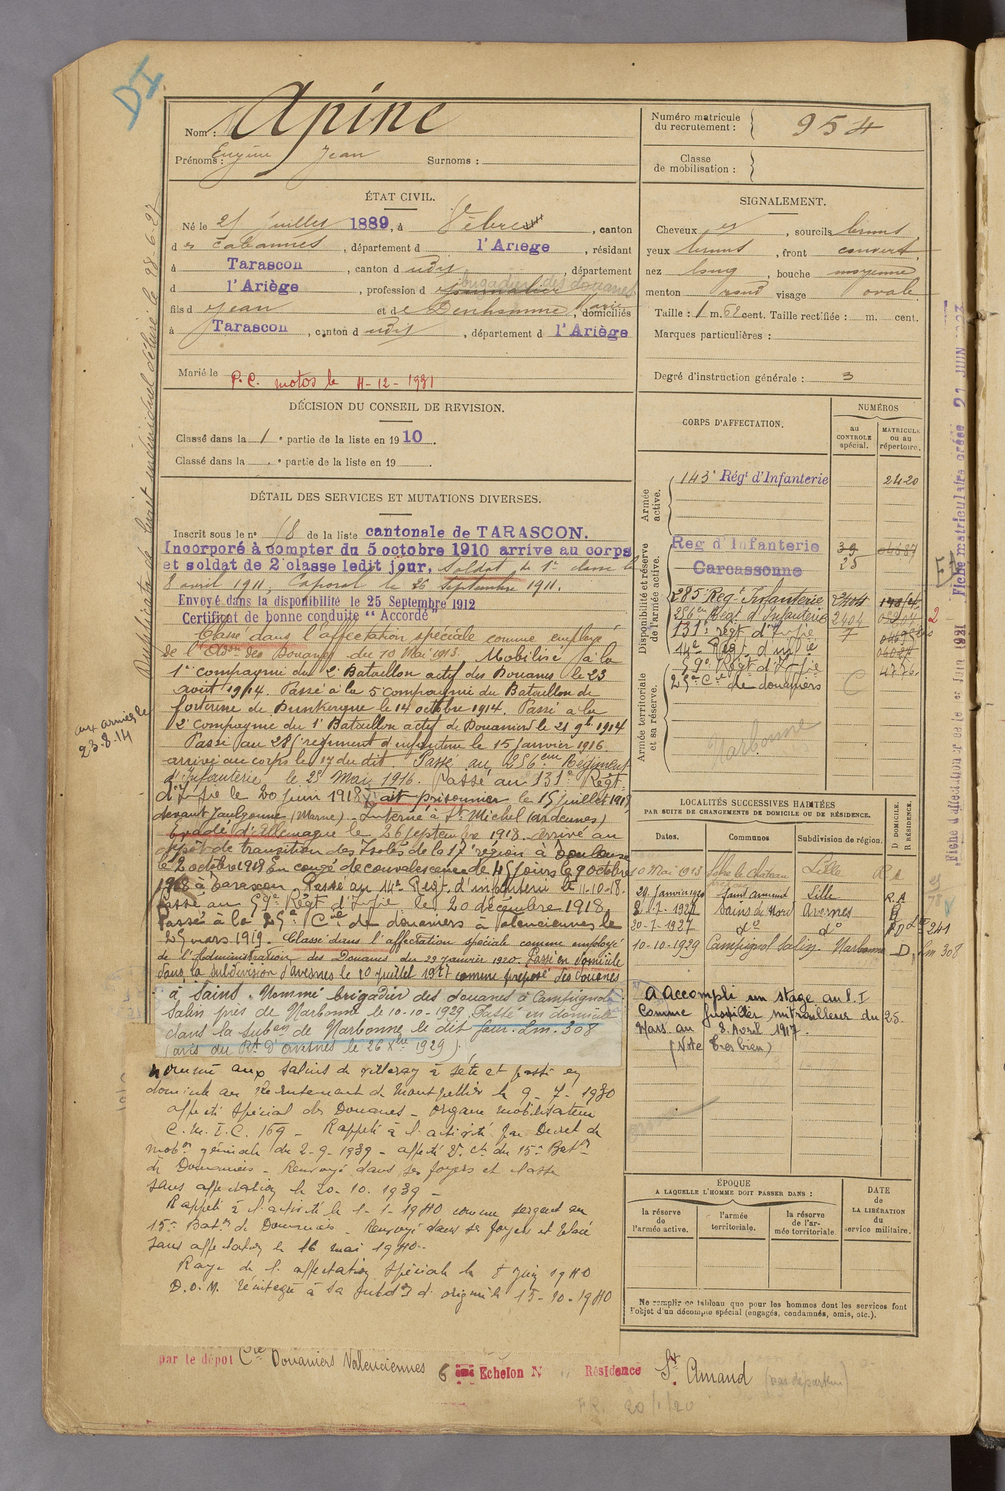 DI
Nom : Apine
Prénoms : Eugène Jean Surnoms :
Numéro matricule du recrutement : 954
Classe de mobilisation :
ÉTAT CIVIL.
Né le 25 juillet 1889, à Vèbre, canton
d es Cabannes, département d l'Ariège, résidant
à Tarascon, canton d udit, département
d l'Ariège, profession d journalier brigadier des douanes
fils d Jean et d e Denhomme Marie, domiciliés
à Tarascon, canton d udit, département d l'Ariège
Marié le
P.C. motos le 11-12-1931
SIGNALEMENT.
Cheveux , sourcils bruns,
yeux bruns, front couvert,
nez long, bouche moyenne
menton rond visage ovale
Taille : 1 m. 62 cent. Taille rectifiée : m. cent.
Marques particulières :
Degré d'instruction générale : 3
DÉCISION DU CONSEIL DE REVISION.
Classé dans la 1 e partie de la liste en 1910.
Classé dans la e partie de la liste en 19 .
DÉTAIL DES SERVICES ET MUTATIONS DIVERSES.
Inscrit sous le n° 18 de la liste cantonale de TARASCON.
Incorporé à compter du 5 octobre 1910 arrive au corps
et soldat de 2e classe ledit jour, Soldat de 1e classe le
8 avril 1911, Caporal le 26 Septembre 1911.
Envoyé dans la disponibilité le 25 Septembre 1912
Certificat de bonne conduite "Accordé"
Classé dans l'affectation spéciale comme employé
de l'Adon des Douanes du 10 Mai 1913. Mobilisé à la
1re compagnie du 2e Bataillon actif des Douanes le 23
août 1914. Passé à la 5e compagnie du Bataillon de
forteresse de Dunkerque le 14 octobre 1914. Passé à la
2e compagnie du 1er Bataillon actif de Douaniers le 21 9bre 1914
Passé au 285e régiment d'infanterie le 15 janvier 1916.
arrivé au corps le 17 du dit. Passé au 256eme Régiment
d'Infanterie, le 25 Mai 1916. Passé au 131e Régt
d'Inf-fie le 20 juin 1918. Fait prisonnier le 15 juillet 1918
devant Jaulgonne (Marne) - Interné à St Michel (Ardennes)
Evadé d'Allemagne le 26 septembre 1918. Arrivé au
dépôt de transition des Isolés de la 17e région à Toulouse
le 2 octobre 1918. En congé de convalescence de 45 jours le 9 octobre
1918 à Tarascon. Passé au 14e Régt d'infanterie le 11-10-18.
Passé au 59e Régt d'Inf-fie le 20 décembre 1918.
Passé à la 25e Cie de douaniers à Valenciennes le
25 mars 1919. Classé dans l'affectation spéciale comme employé
de l'Administration des Douanes du 29 Janvier 1920. Passé en domicile
dans la subdivision d'Avesnes le 20 juillet 1927 comme préposé des Douanes
à Sains. Nommé brigadier des douanes à Campignol
Salin près de Narbonne le 10-10-1929. Passé en domicile
dans la subon de Narbonne le dit jour. Dm. 308
(avis du Rt d'Avesnes le 26 Xbre 1929).
Nommé aux Salins de Villeroy à Sète et passé en
domicile au recrutement de Montpellier le 9-7-1930
affecté spécial des Douanes - organe mobilisateur
C.M.I.C. 169 - Rappelé à l'activité par Décret de
mobon générale du 2-9-1939 - affecté 2e Cie du 15e Baton
de Douaniers - Renvoyé dans ses foyers et classé
sans affectation le 20-10-1939 -
Rappelé à l'activité le 1-1-1940 comme sergent au
15e Baton de Douaniers - Renvoyé dans ses foyers et classé
sans affectation le 16 mai 1940.
Rayé de l'affectation spéciale le 8 Juin 1940
D.O.M. réintégré à sa subdon d'origine le 15-10-1940
aux armées le
23-8-14
Duplicata de livret individuel délivré le 28-6-27
CORPS D'AFFECTATION.
NUMÉROS
AU CONTROLE SPÉCIAL.
MATRICULE OU AU RÉPERTOIRE.
Armée active.
143e Régt d'Infanterie 2420
Disponibilité et réserve de l'armée active.
Reg d'Infanterie
Carcassonne
285 Régt Infanterie 2404
256em Régt d'Infanterie 2404
131e régt d'Inf-fie
14e Régt d'inf-ie
59e Régt d'Inf-fie
Armée territoriale et sa réserve.
25e Cie de douaniers
Narbonne
LOCALITÉS SUCCESSIVES HABITÉES
PAR SUITE DE CHANGEMENTS DE DOMICILE OU DE RÉSIDENCE.
Dates. Communes Subdivision de région. D DOMICILE. R RÉSIDENCE.
10 Mai 1913 Solre le Château Lille R.A
29 janvier 1920 Saint Amand Lille R.A
2-7-1927 Sains du Nord Avesnes R
20-7-1927 do do D dm 241
10-10-1929 Campignol Salin Narbonne D. Dm 308
A Accompli un stage au C.I
comme fusilier mitrailleur du 25
Mars au 2 Avril 1917.
(Note Très bien)
ÉPOQUE
A LAQUELLE L'HOMME DOIT PASSER DANS :
la réserve de l'armée active.
l'armée territoriale.
la réserve de l'armée territoriale.
DATE DE LA LIBÉRATION du service militaire.
Ne remplir ce tableau que pour les hommes dont les services font
l'objet d'un décompte spécial (engagés, condamnés, omis, etc.).
Fiche matriculaire créée 21 JUIN
Fiche d'affectation
par le dépôt Cie Douaniers Valenciennes 6 eme Echelon N Résidence St Amand
20/1/20